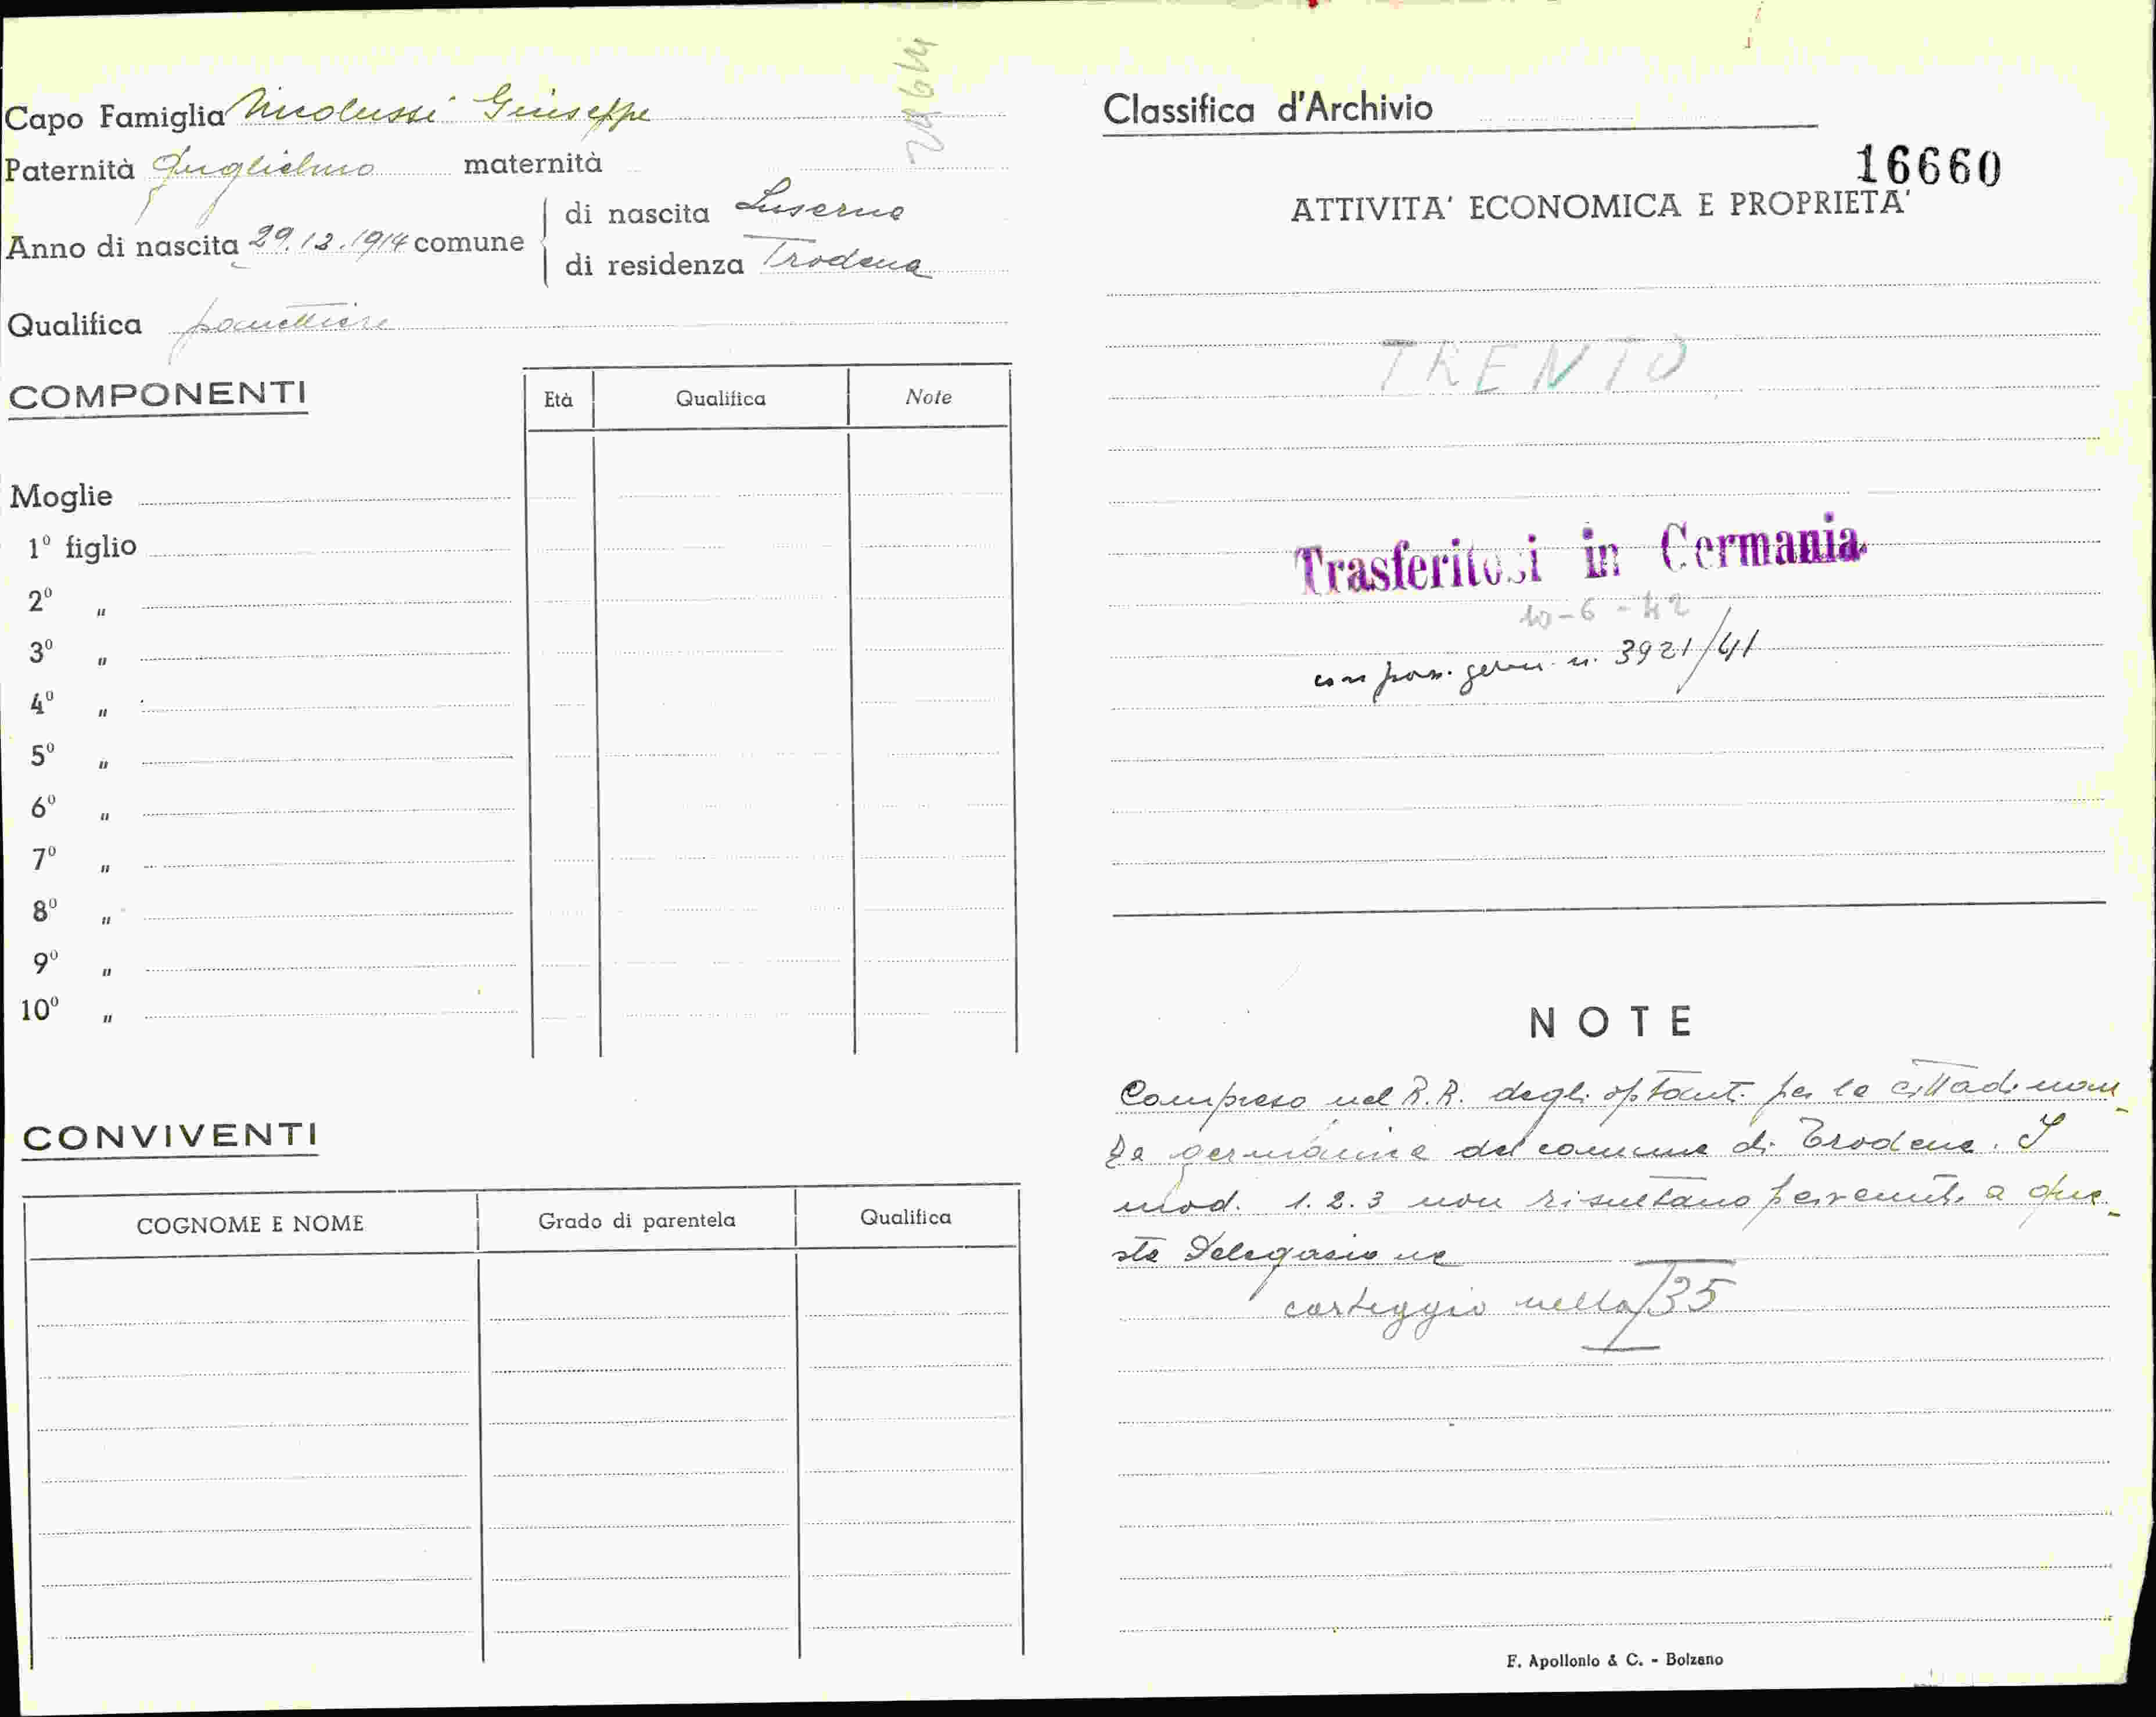 Capo Famiglia Nicolussi Giuseppe
Paternità Guglielmo maternità
Anno di nascita 29.12.1914 comune
di nascita Luserna
di residenza Trodena
Qualifica panettiere
COMPONENTI
Età Qualifica Note
Moglie
1º figlio
2º "
3º "
4º "
5º "
6º "
7º "
8º "
9º "
10º "
CONVIVENTI
COGNOME E NOME Grado di parentela Qualifica
Classifica d'Archivio
16660
ATTIVITA' ECONOMICA E PROPRIETA'
TRENTO
Trasferitosi in Germania
10-6-42
con pass. germ. n. 3921/41
NOTE
Compreso nel R.R. degli optanti per la cittadinan-
za germanica del comune di Trodena. I
mod. 1.2.3 non risultano pervenuti a que-
sta Delegazione
carteggio nella I35
F. Apollonio & C. - Bolzano